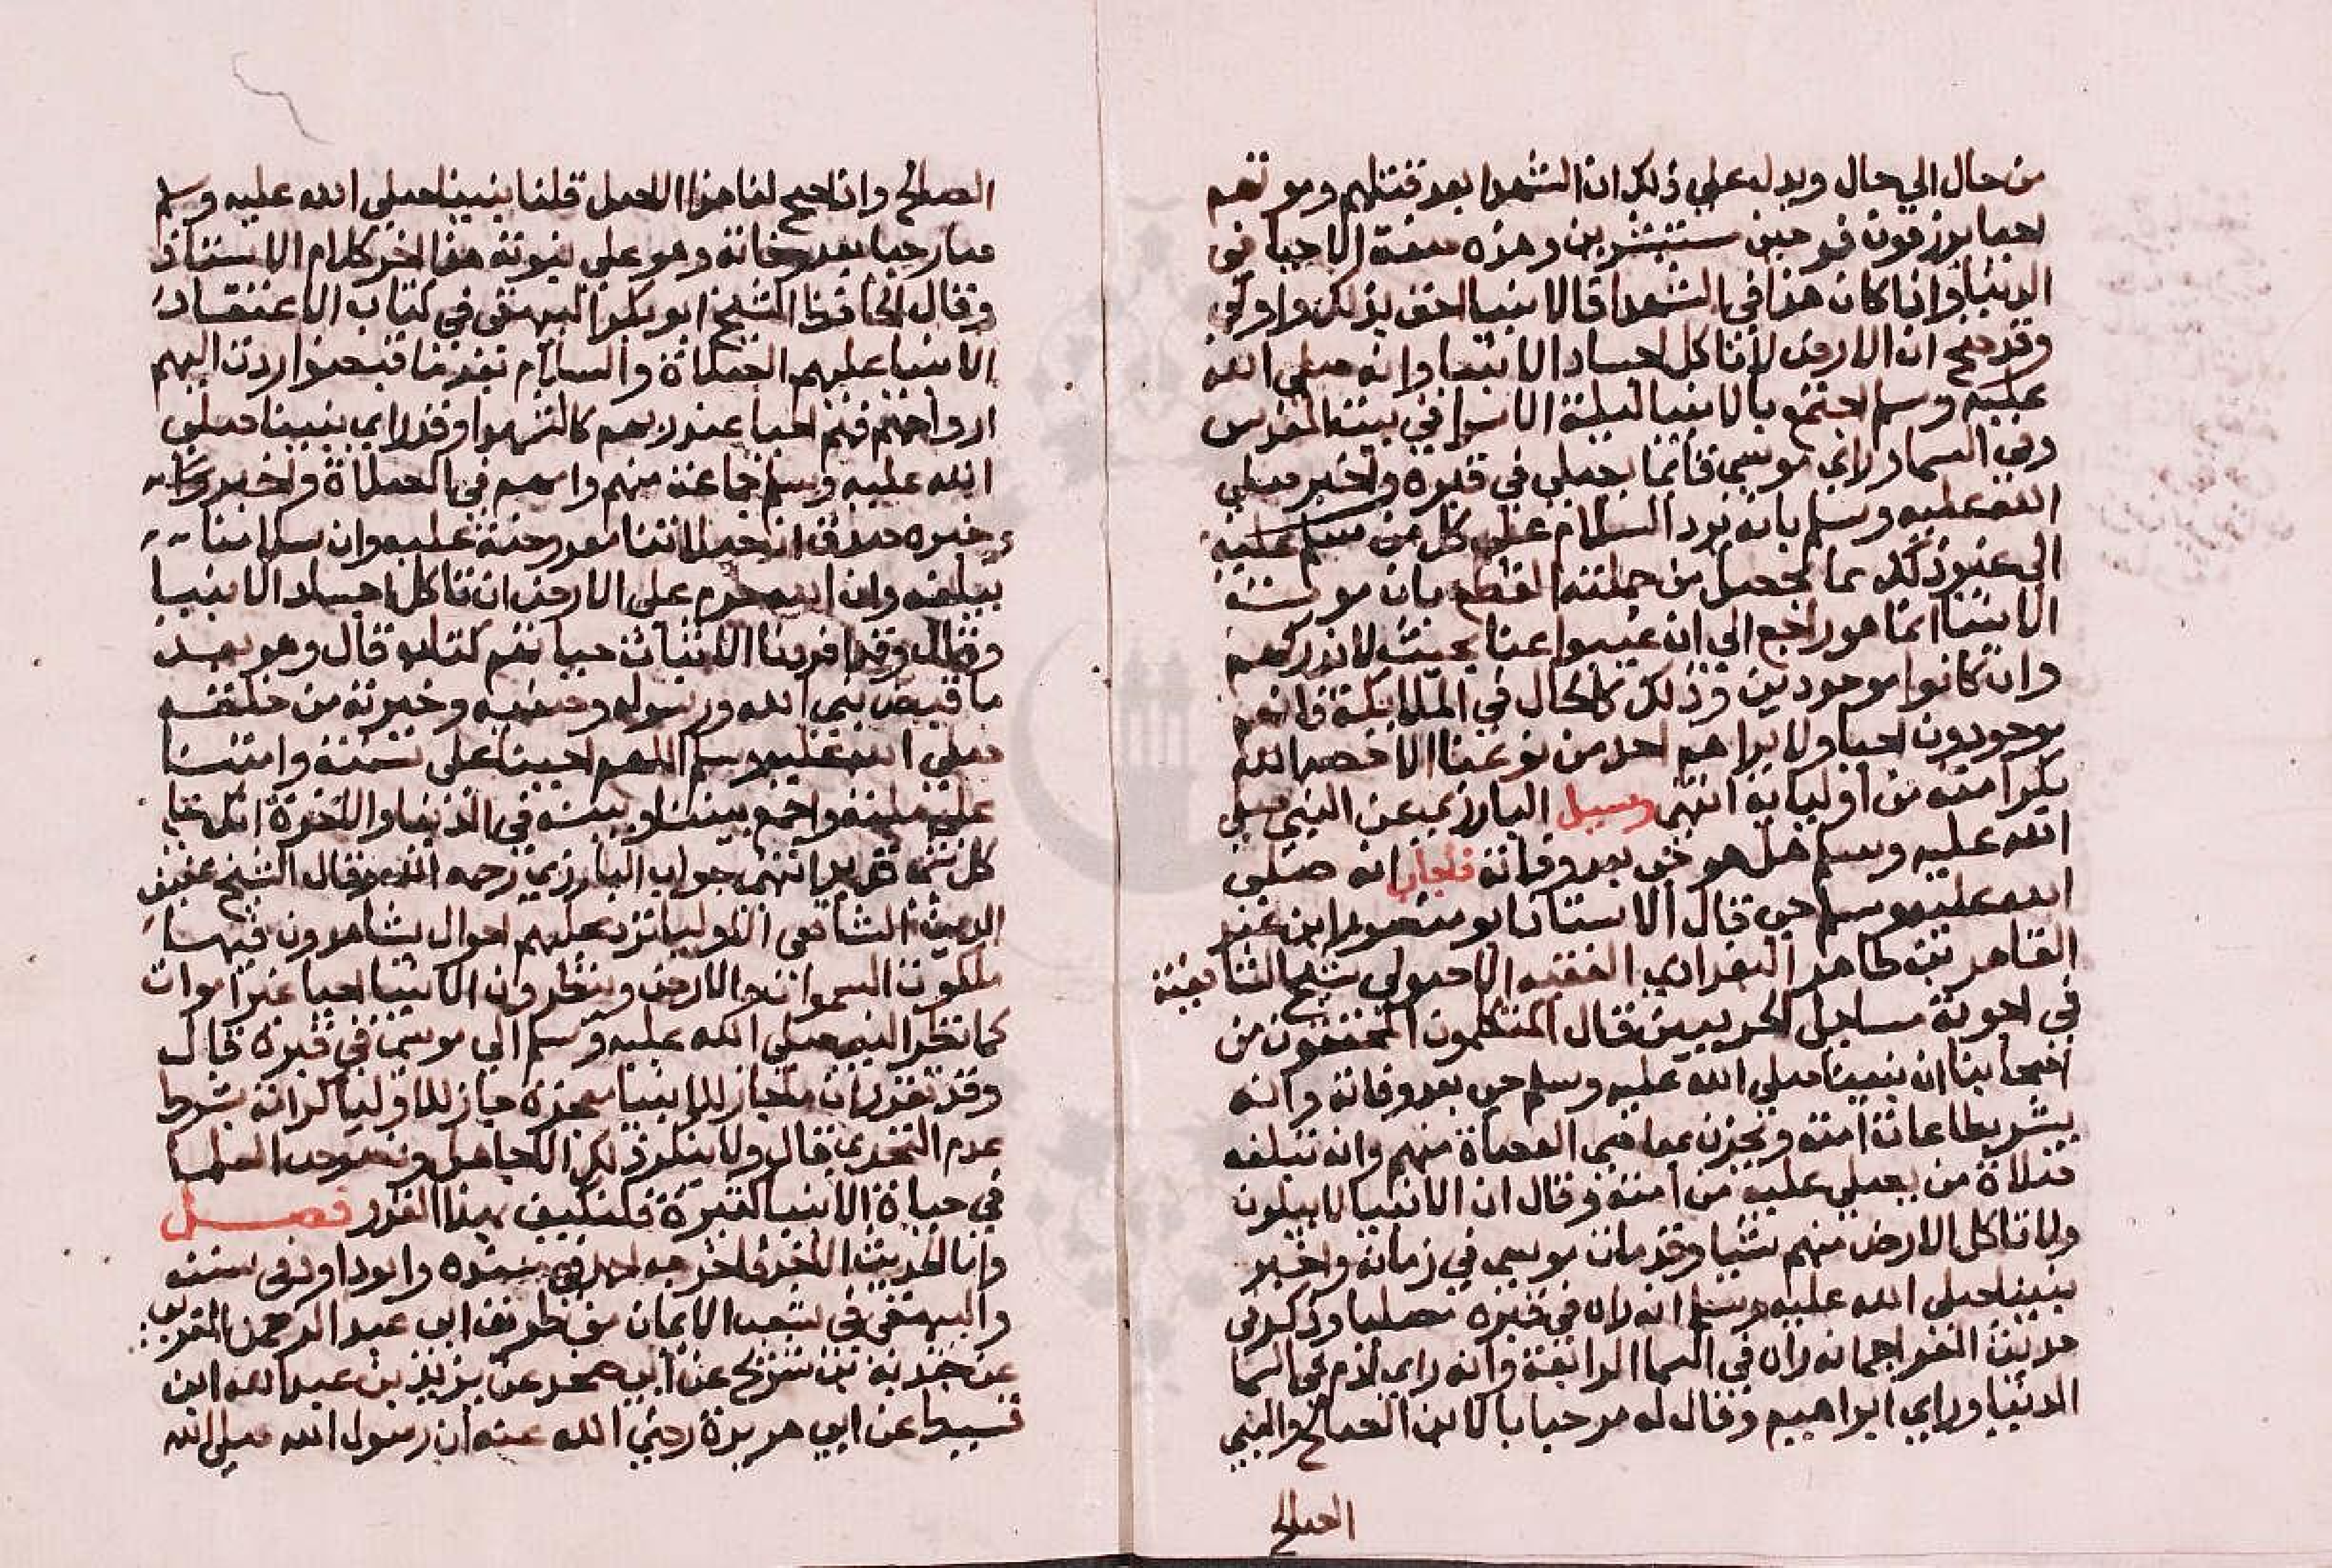 من حال الي حال ويدل علي ذلك ان الشهدا بعد قتلهم وموتهم
احيا يرزقون فرحين مستبشرين وهذه صفة الاحيا في
الدنيا واذا كان هذا في الشهدا فالانبيا احق بذلك واولي
وقد صح ان الارض لا تاكل اجساد الانبيا وانه صلي الله
عليه وسلم اجتمع بالانبيا ليلة الاسرا في بيت المقدس
وفي السما وراي موسي قائما يصلي في قبره واخبر صلي
الله عليه وسلم بانه يرد السلام علي كل من سلم عليه
الي غير ذلك مما يحصل من جملته القطع بان موت
الانبيا انما هو راجع الي ان غيبوا عنا بحيث لا ندركهم
وان كانوا موجودين وذلك كالحال في الملايكة فانهم
موجودون احيا ولا يراهم احد من نوعنا الا من خصه الله
بكرامته من اوليايه انتهي وسيل البارزي عن النبي صلي
الله عليه وسلم هل هو حي بعد وفاته فاجاب انه صلي
الله عليه وسلم حي قال الاستاذ ابو منصور ابن عبد
القاهر بن طاهر البغدادي الفقيه الاصولي شيخ الشافعية
في اجوبة مسايل الجربيين قال المتكلمون المحققون من
اصحابنا ان نبينا صلي الله عليه وسلم حي بعد وفاته وانه
يبشر بطاعات امته ويحزن بمعاصي العصاة منهم وانه تبلغه
صلاة من يصلي عليه من امته وقال ان الانبيا لا يبلون
ولا تاكل الارض منهم شيا وقد مات موسي في زمانه واخبر
نبينا صلي الله عليه وسلم انه راه في قبره مصليا وذكر في
حديث المعراج انه راه في السما الرابعة وانه راي ادم في السما
الدنيا وراي ابراهيم وقال له مرحبا بالابن الصالح والنبي
الصالح
الصالح واذا صح لنا هذا الاصل قلنا نبينا صلي الله عليه وسلم
صار حيا بعد وفاته وهو علي نبوته هذا اخر كلام الاستاذ
وقال الحافظ الشيخ ابو بكر البيهقي في كتاب الاعتقاد
الانبيا عليهم الصلاة والسلام بعد ما قبضوا ردت اليهم
ارواحهم فهم احيا عند ربهم كالشهدا وقد راي نبينا صلي
الله عليه وسلم جماعة منهم وامهم في الصلاة واخبر
وخبره صدق ان صلاتنا معروضة عليه وان سلامنا
يبلغه وان الله حرم علي الارض ان تاكل اجساد الانبيا
وقال وقد افردنا لاثبات حياتهم كتابا قال وهو بعد
ما قبض نبي الله ورسوله وصفيه وخيرته من خلقه
صلي الله عليه وسلم اللهم احينا علي سنته وامتنا
علي ملته واجمع بيننا وبينه في الدنيا والاخرة انك علي
كل شي قدير انتهي جواب البارزي رحمه الله وقال الشيخ عفيف
الدين الشافعي الاوليا ترد عليهم احوال يشاهدون فيها
ملكوت السموات والارض وينظرون الانبيا احيا غير اموات
كما نظر النبي صلي الله عليه وسلم الي موسي في قبره قال
وقد تقرر ان ما جاز للانبيا معجزة جاز للاوليا كرامة بشرط
عدم التحدي قال ولا ينكر ذلك الا جاهل ونصوص العلما
في حياة الانبيا كثيرة فلنكتف بهذا القدر فصل
واما الحديث الاخر فاخرجه احمد في مسنده وابو داود في سننه
والبيهقي في شعب الايمان من طريق ابي عبد الرحمن المقري
عن حيوة بن شريح عن ابي صخر عن يزيد بن عبد الله ابن
قسيط عن ابي هريرة رضي الله عنه ان رسول الله صلي الله